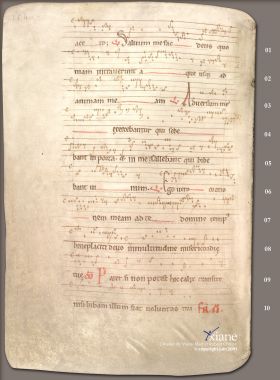 Saluum me fac deus quo 01
niam intrauerunt a que usq; ad 02
animam me am Aduersum me 03
exercebantur qui sede 04
bant in porta & in me psallebant qui bibe 05
bant in uinum Ego uero oratio 06
nem meam ad te domine temp 07
beneplaciti deus inmultitudine misericordie 08
tue Pater si non potest hic calix transire 09
nisi bibam illum fiat uoluntas tua 10
Xiane
© copyright juin 2011